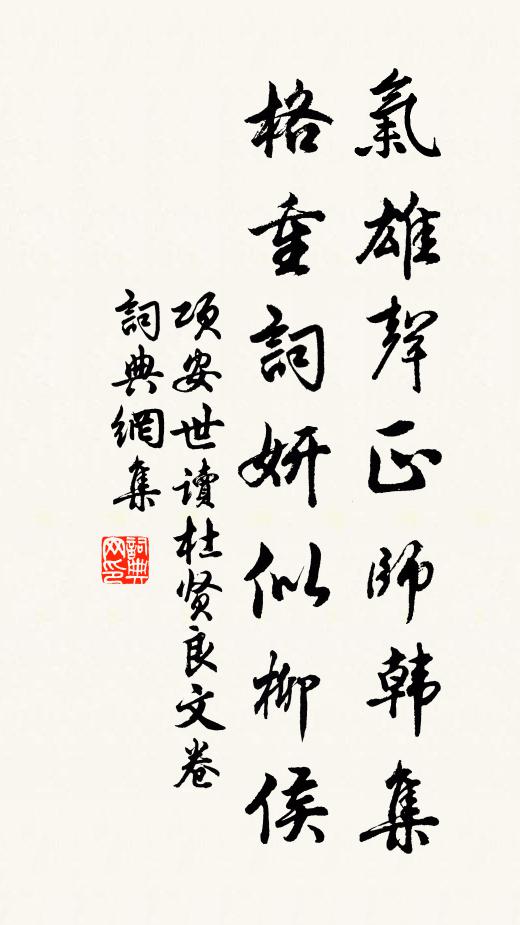 氣雄聲正師韩集
格重詞妍似柳侯
项安世讀杜贤良文卷
詞典網集
詞典网印